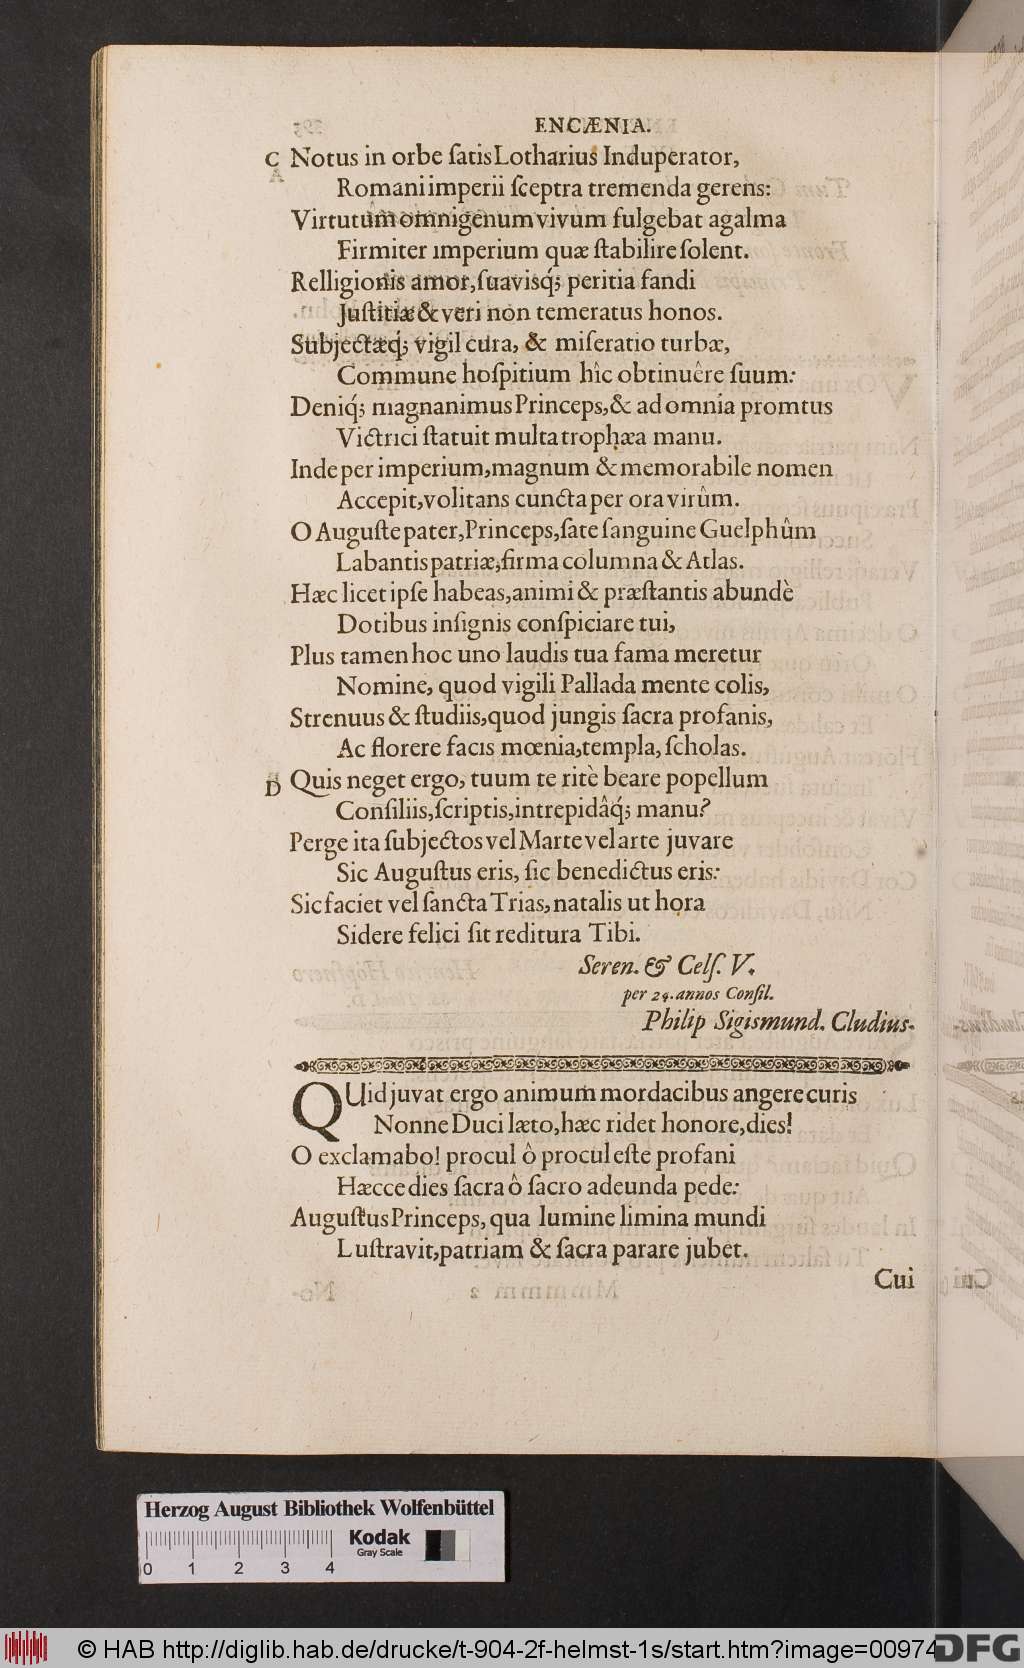 ENCÆNIA.
C Notus in orbe ſatis Lotharius Induperator,
Romani imperii ſceptra tremenda gerens:
Virtutum omnigenum vivum fulgebat agalma
Firmiter imperium quæ ſtabilire ſolent.
Relligionis amor, ſuavisq́; peritia fandi
Juſtitiæ & veri non temeratus honos.
Subjectæq́; vigil cura, & miſeratio turbæ,
Commune hoſpitium hîc obtinuêre ſuum:
Deniq́; magnanimus Princeps, & ad omnia promtus
Victrici ſtatuit multa trophæa manu.
Inde per imperium, magnum & memorabile nomen
Accepit, volitans cuncta per ora virûm.
O Auguſte pater, Princeps, ſate ſanguine Guelphûm
Labantis patriæ, firma columna & Atlas.
Hæc licet ipſe habeas, animi & præſtantis abundè
Dotibus inſignis conſpiciare tui,
Plus tamen hoc uno laudis tua fama meretur
Nomine, quod vigili Pallada mente colis,
Strenuus & ſtudiis, quod jungis ſacra profanis,
Ac florere facis mœnia, templa, ſcholas.
D Quis neget ergo, tuum te ritè beare popellum
Conſiliis, ſcriptis, intrepidâq́; manu?
Perge ita ſubjectos vel Marte vel arte juvare
Sic Auguſtus eris, ſic benedictus eris:
Sic faciet vel ſancta Trias, natalis ut hora
Sidere felici ſit reditura Tibi.
Seren. & Celſ. V.
per 24. annos Conſil.
Philip Sigismund. Cludius.
QUid juvat ergo animum mordacibus angere curis
Nonne Duci læto, hæc ridet honore, dies!
O exclamabo! procul ô procul eſte profani
Hæcce dies ſacra ô ſacro adeunda pede:
Auguſtus Princeps, qua lumine limina mundi
Luſtravit, patriam & ſacra parare jubet.
Cui
Herzog August Bibliothek Wolfenbüttel
Kodak
Gray Scale
0 1 2 3 4
© HAB http://diglib.hab.de/drucke/t-904-2f-helmst-1s/start.htm?image=00974
DFG